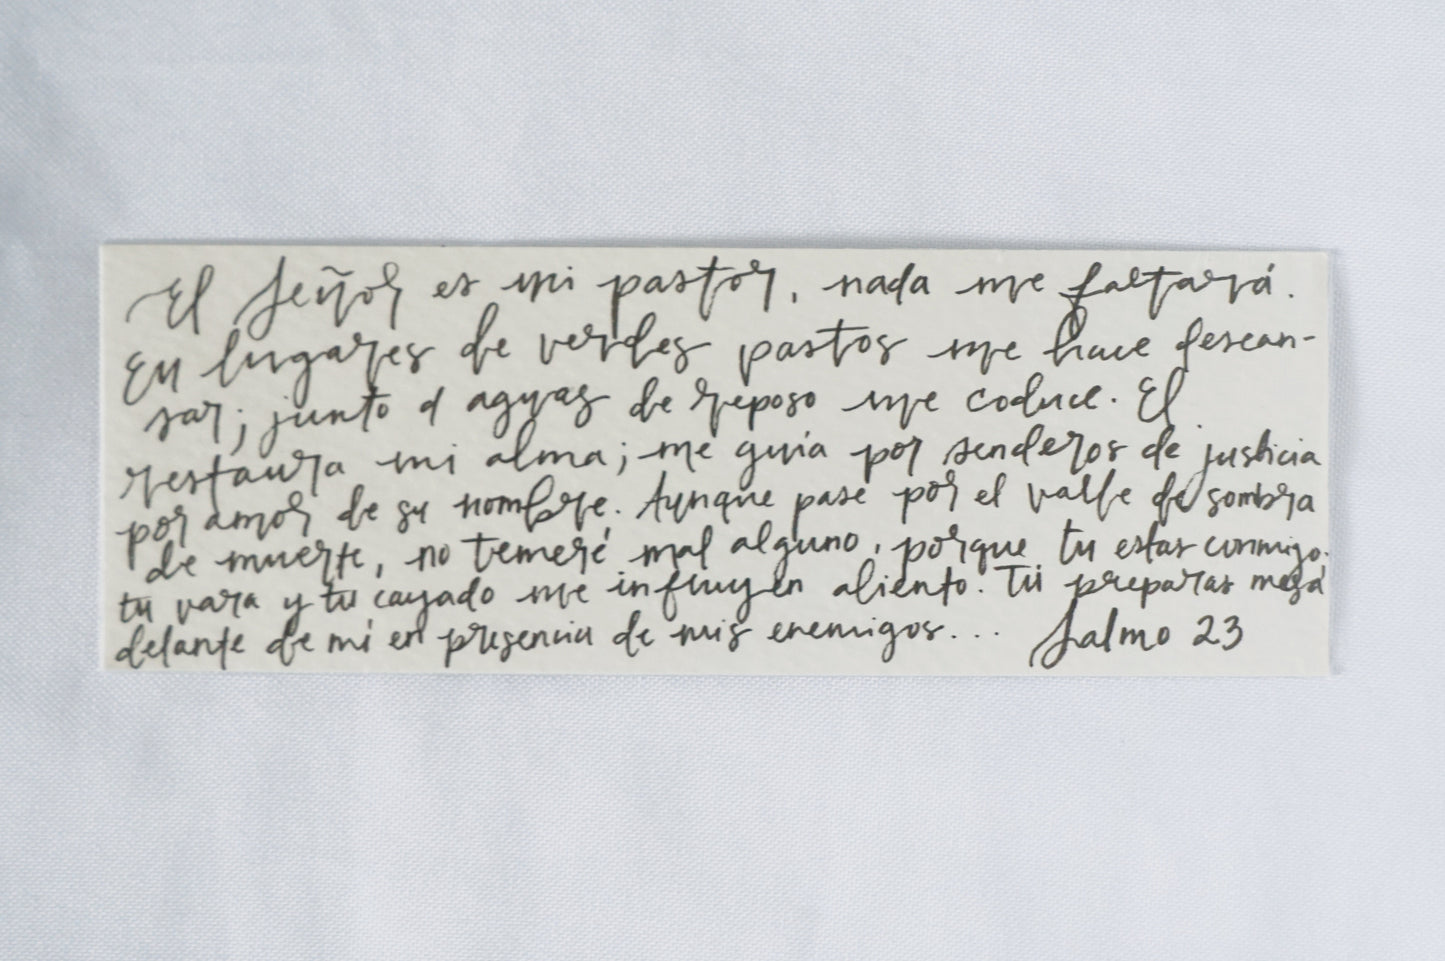 El Señor es mi pastor, nada me faltará.
En lugares de verdes pastos me hace descan-
sar; junto a aguas de reposo me coduce. El
restaura mi alma; me guía por senderos de justicia
por amor de su nombre. Aunque pase por el valle de sombra
de muerte, no temeré mal alguno, porque tu estas conmigo.
tu vara y tu cayado me influyen aliento. Tú preparas mesa
delante de mí en presencia de mis enemigos... Salmo 23